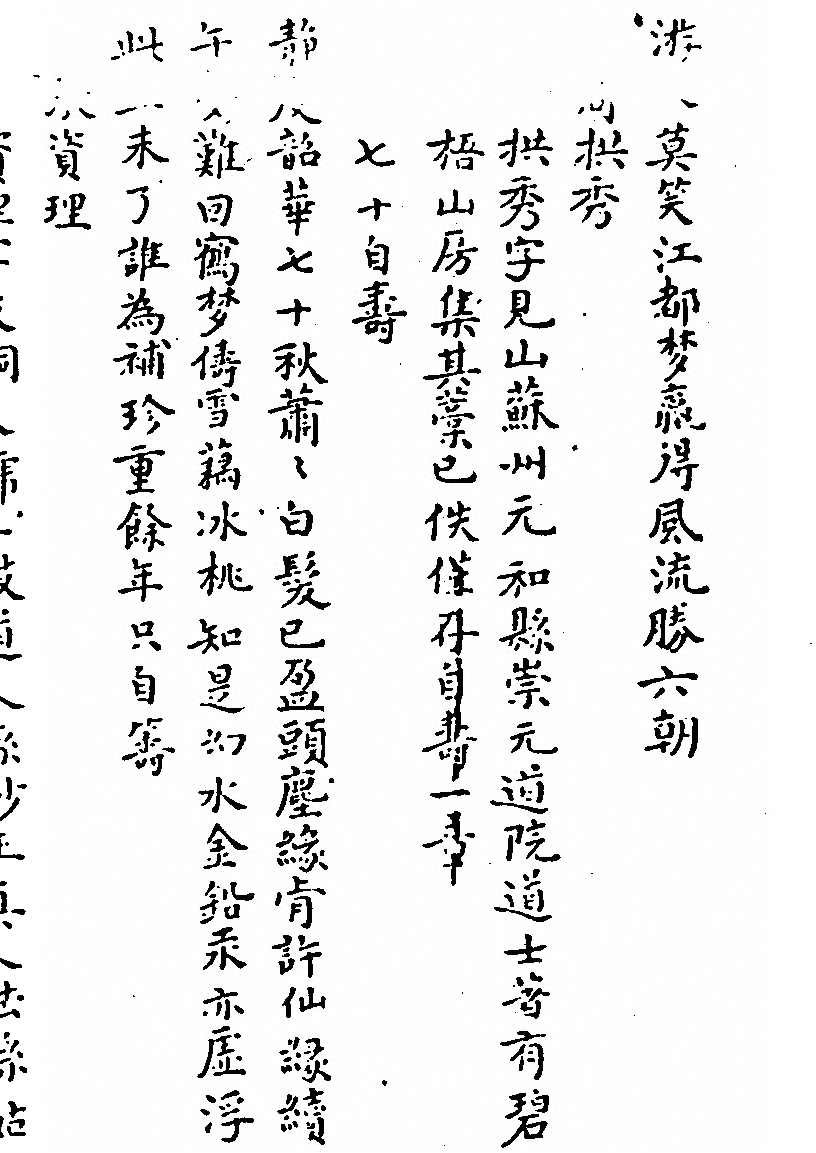 游 莫笑江都梦贏得風流勝六朝
拱秀
拱秀字見山蘇州元和縣崇元道院道士著有碧
梧山房集其藁已佚僅存自壽一章
七十自壽
靜 韶華七十秋蕭〻白髮已盈頭塵緣肯許仙緣續
午 難回鶴梦儔雪藕冰桃知是幻水金鉛汞亦虛浮
此 未了誰為補珍重餘年只自籌
資理